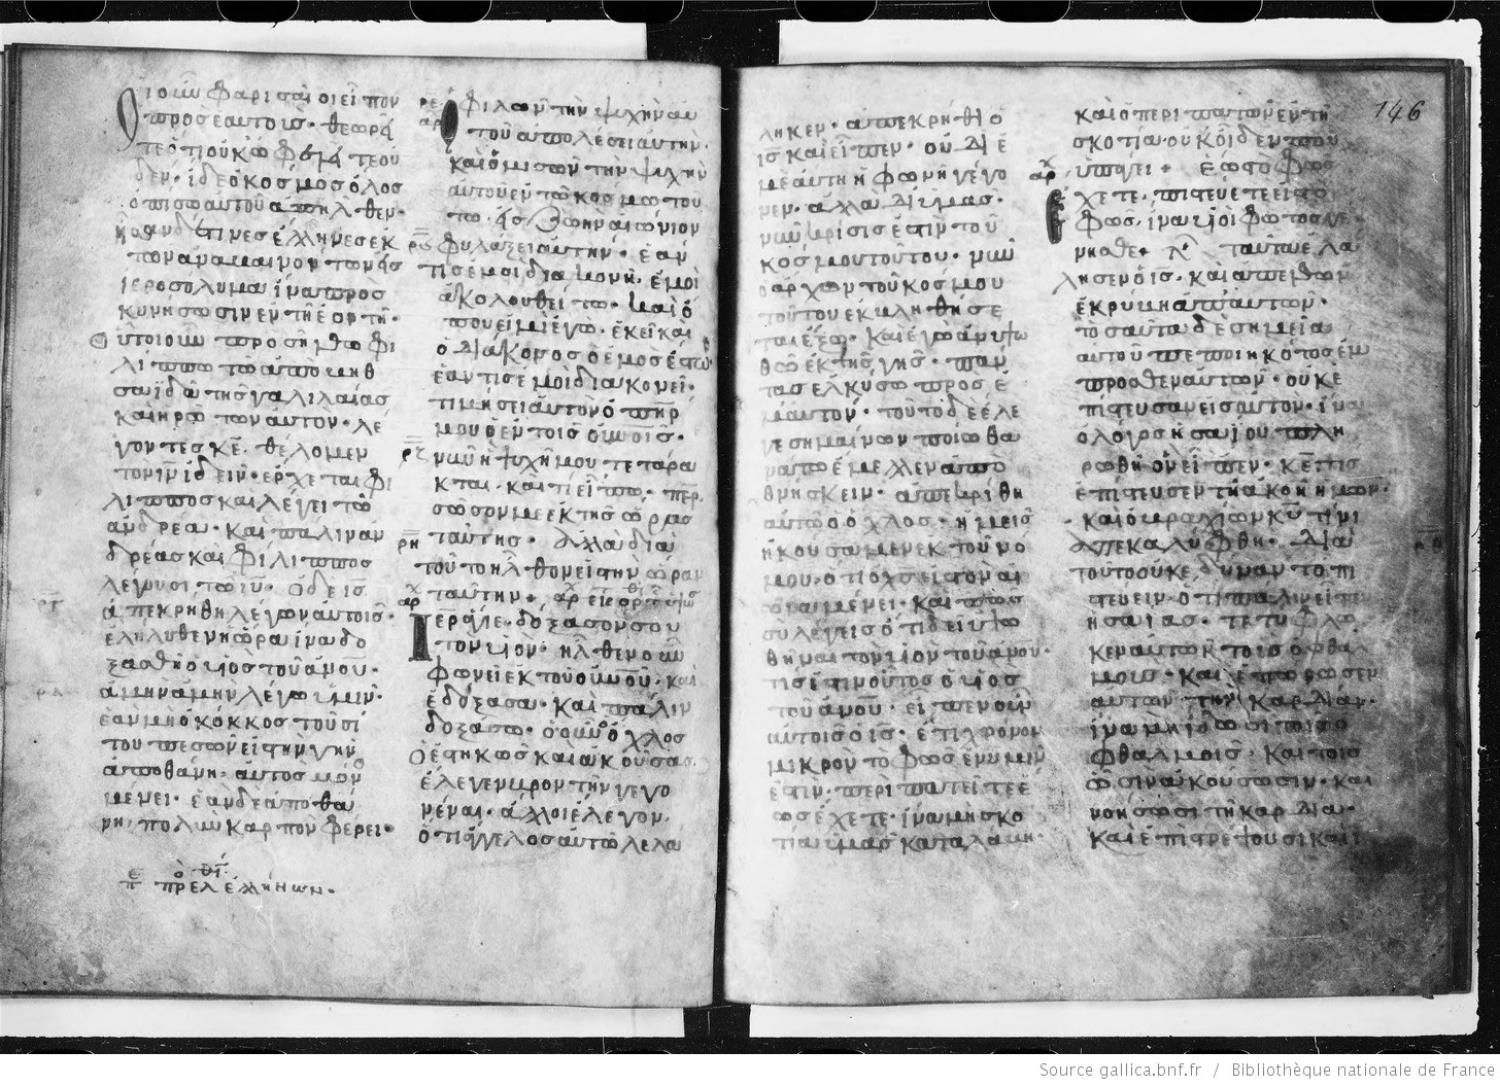 οἱ οὖν φαρισαῖοι εἶπον
πρὸς ἑαυτούς· θεωρεῖ
τε ὅτι οὐκ ὠφελεῖτε οὐ
δέν· ἴδε ὁ κόσμος ὅλος
ὀπίσω αὐτοῦ ἀπῆλθεν·
ἦσαν δέ τινες ἕλληνες ἐκ
τῶν ἀναβαινόντων εἰς
ἱεροσόλυμα ἵνα προσ
κυνήσωσιν ἐν τῇ ἑορτῇ·
οὗτοι οὖν προσῆλθον φι
λίππω τῶ ἀπὸ βηθ
σαϊδὰ τῆς γαλιλαίας
καὶ ἠρώτων αὐτόν· λέ
γοντες κε̅· θέλομεν
τὸν ιν̅ ἰδεῖν· ἔρχεται φί
λιππος καὶ λέγει τῶ
ἀνδρέα· καὶ πάλιν ἀν
δρέας καὶ φίλιππος
λέγουσι τῶ ιυ̅· ὁ δὲ ις̅
ἀπεκρίθη λέγων αὐτοῖς·
ἐλήλυθεν ἡ ὥρα ἵνα δο
ξασθῆ ὁ υἱὸς τοῦ ἀνου̅·
ἀμὴν ἀμὴν λέγω ὑμῖν·
ἐὰν μὴ ὁ κόκκος τοῦ σί
του πεσὼν εἰς τὴν γῆν
ἀποθάνη· αὐτὸς μόνος
μένει· ἐὰν δὲ ἀποθά
νη, πολὺν καρπὸν φέρει·
ὁ φιλῶν τὴν ψυχὴν αὐ
τοῦ ἀπολέσει αὐτήν·
καὶ ὁ μισῶν τὴν ψυχὴν
αὐτοῦ ἐν τῶ κόσμω τού
τω· εἰς ζωὴν αἰώνιον
φυλάξει αὐτήν· ἐάν
τις ἐμοὶ διακονῆ· ἐμοὶ
ἀκολουθείτω· καὶ ὅ
που εἰμὶ ἐγώ· ἐκεῖ καὶ
ὁ διάκονος ὁ ἐμὸς ἔσται·
ἐάν τις ἐμοὶ διακονεῖ·
τιμήσει αὐτὸν ὁ πη̅ρ
μου ὁ ἐν τοῖς οὐνοῖς·
νῦν ἡ ψυχή μου τετάρα
κται· καὶ τί εἴπω· περ̅·
σῶσόν με ἐκ τῆς ὥρας
ταύτης· ἀλλὰ διὰ
τοῦτο ἦλθον εἰς τὴν ὥραν
ταύτην·
περ̅· δόξασόν σου
τὸν υἱόν· ἦλθεν οὖν
φωνὴ ἐκ τοῦ οὐνοῦ· καὶ
ἐδόξασα· καὶ πάλιν
δοξάσω· ὁ οὖν ὄχλος
ὁ ἑστηκὼς καὶ ἀκούσας·
ἔλεγεν βροντὴν γεγο
νέναι· ἄλλοι ἔλεγον·
ὅτι ἄγγελος αὐτῶ λελά
ληκεν· ἀπεκρίθη ὁ
ις̅ καὶ εἶπεν· οὐ δι ἐ
μὲ αὕτη ἡ φωνὴ γέγο
νεν· ἀλλὰ δι ὑμᾶς·
νῦν κρίσις ἐστὶν τοῦ
κόσμου τούτου· νῦν
ὁ ἄρχων τοῦ κόσμου
τούτου ἐκβληθήσε
ται ἔξω· καὶ ἐγὼ ἂν ὑψω
θῶ ἐκ τῆς γῆς· πάν
τας ἑλκύσω πρὸς ἐ
μαυτόν· τοῦτο δὲ ἔλε
γε σημαίνων ποίω θα
νάτω ἔμελλεν ἀπο
θνήσκειν· ἀπεκρίθη
αὐτῶ ὁ ὄχλος· ἡμεῖς
ἠκούσαμεν ἐκ τοῦ νό
μου· ὅτι ὁ χς̅ εἰς τὸν αἰ
ῶνα μένει· καὶ πῶς
σὺ λέγεις ὅτι δεῖ ὑψω
θῆναι τὸν υἱὸν τοῦ ἀνου̅·
τίς ἐστιν οὗτος ὁ υἱὸς
τοῦ ἀνου̅· εἶπεν οὖν
αὐτοῖς ὁ ις̅· ἔτι χρόνον
μικρὸν τὸ φῶς ἐν ὑμῖν
ἐστιν· περιπατεῖτε ἕ
ως ἔχετε· ἵνα μὴ σκο
τία ὑμᾶς καταλάβη·
καὶ ὁ περιπατῶν ἐν τῆ
σκοτία· οὐκ οἶδεν ποῦ
ὑπάγει· ἕως τὸ φῶς
ἔχετε, πιστεύετε εἰς τὸ
φῶς· ἵνα υἱοὶ φωτὸς γέ
νησθε· ταῦτα ἐλά
λησεν ὁ ις̅· καὶ ἀπελθὼν
ἐκρύβη ἀπ αὐτῶν·
τοσαῦτα δὲ σημεῖα
αὐτοῦ πεποιηκότος ἔμ
προσθεν αὐτῶν· οὐκ ἐ
πίστευσαν εἰς αὐτόν· ἵνα
ὁ λόγος ἡσαΐου πλη
ρωθῆ ὃν εἶπεν· κε̅ τίς
ἐπίστευσεν τῆ ἀκοῆ ἡμῶν·
καὶ ὁ βραχίων κυ̅ τίνι
ἀπεκαλύφθη· διὰ
τοῦτο οὐκ ἐδύναντο πι
στεύειν· ὅτι πάλιν εἶπεν
ἡσαΐας· τετύφλω
κεν αὐτῶν τοὺς ὀφθαλ
μούς· καὶ ἐπώρωσεν
αὐτῶν τὴν καρδίαν·
ἵνα μὴ ἴδωσι τοῖς ὀ
φθαλμοῖς· καὶ τοῖς
ὠσὶν ἀκούσωσιν· καὶ
νοήσωσι τῆ καρδία·
καὶ ἐπιστρέψουσι καὶ ἰ
146
Source gallica.bnf.fr / Bibliothèque nationale de France